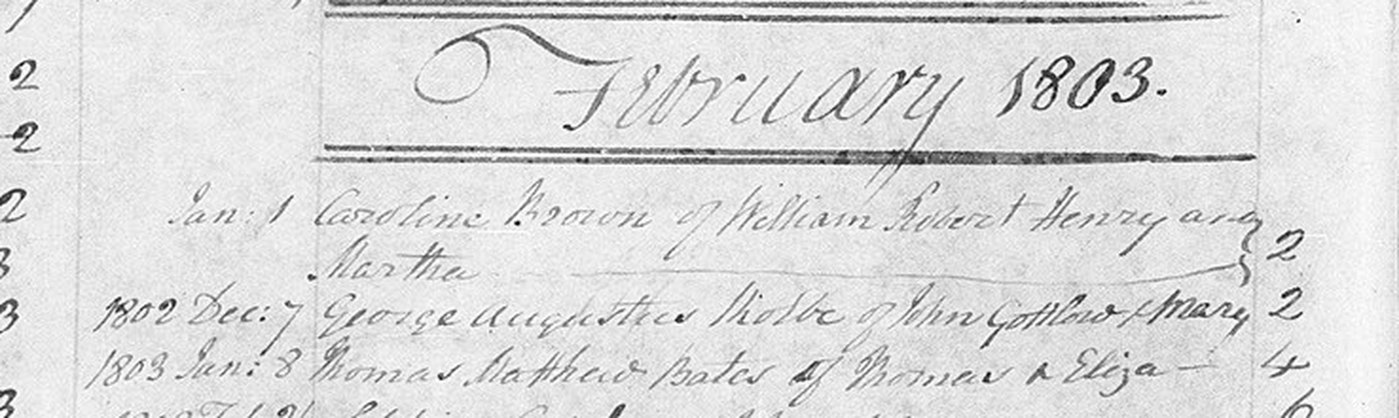 February 1803.
2
2
2 Jan: 1 Caroline Brown of William Robert Henry and
3 Martha 2
3 1802 Dec: 7 George Augustus of John & Mary 2
1803 Jan: 8 Thomas Matthew Bates of Thomas & Eliza 4
3 6